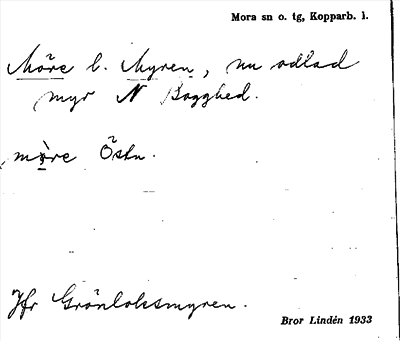 Mora sn o. tg, Kopparb. l.
Möre l. Myren, nu odlad
myr N Bogghed.
mòre Östn.
Jfr Grönloksmyren.
Bror Lindén 1933